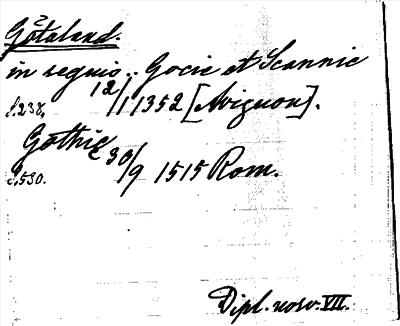 Götaland.
in regnis.. Gocie et Scannie
S.238. 12/1 1352 [Avignon].
Gothie
S.530. 30/9 1515 Rom.
Dipl. norv. VII.